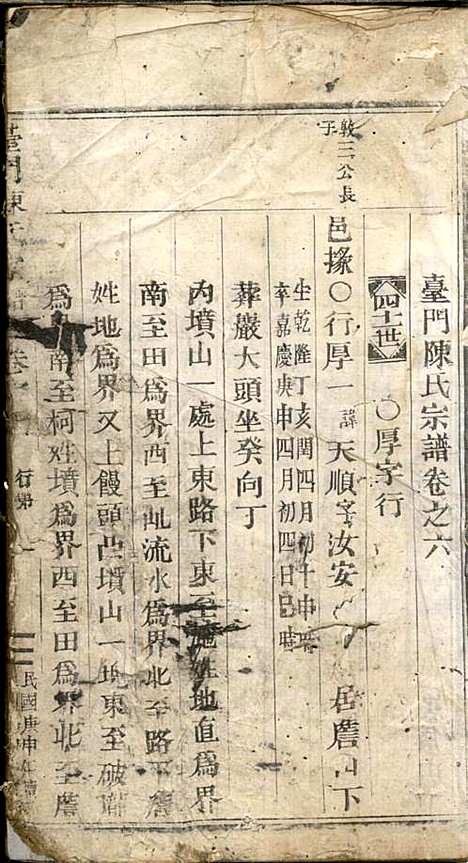 臺門陳氏宗譜卷之六
四十世 〇厚字行
敦三公長子
邑掾〇行厚一 諱天順字汝安 居詹山下
生乾隆丁亥閏四月初十申時
卒嘉慶庚申四月初四日巳時
葬嚴大頭坐癸向丁
內墳山一處上東路下東至詹姓地直為界
南至田為界西至乢流水為界北至路下詹
姓地為界又土饅頭凸墳山一塊東至破塘
為 南至柯姓墳為界西至田為界北至詹
臺門陳氏宗譜 卷 行第 民國庚申年